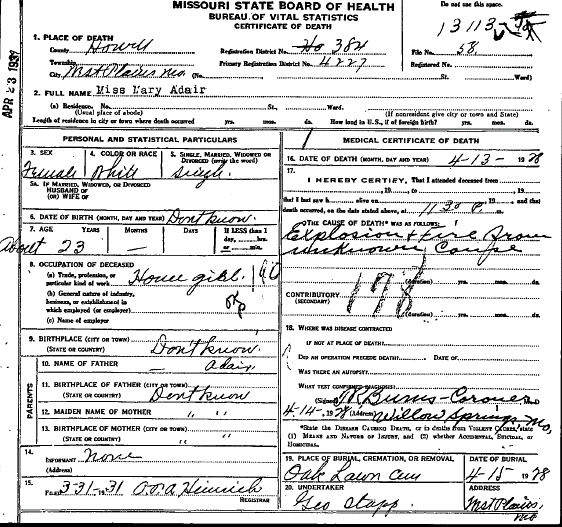 MISSOURI STATE BOARD OF HEALTH
BUREAU OF VITAL STATISTICS
CERTIFICATE OF DEATH
Do not use this space.
13113
APR 23 1931
1. PLACE OF DEATH
County Howell
Registration District No. 384
File No. 58
Township
Primary Registration District No. 4227
Registered No.
City Mst Plains Mo. (No. St. Ward)
2. FULL NAME Miss Mary Adair
(a) Residence. No. St., Ward.
(Usual place of abode) (If nonresident give city or town and State)
Length of residence in city or town where death occurred yrs. mos. ds. How long in U.S., if of foreign birth? yrs. mos. ds.
PERSONAL AND STATISTICAL PARTICULARS
3. SEX
Female
4. COLOR OR RACE
White
5. SINGLE, MARRIED, WIDOWED OR DIVORCED (write the word)
Single
5a. IF MARRIED, WIDOWED, OR DIVORCED
HUSBAND OF
(OR) WIFE OF
6. DATE OF BIRTH (MONTH, DAY AND YEAR) Dont know.
7. AGE YEARS MONTHS DAYS If LESS than 1 day, hrs. or min.
About 23 —
8. OCCUPATION OF DECEASED
(a) Trade, profession, or particular kind of work House girl
(b) General nature of industry, business, or establishment in which employed (or employer)
(c) Name of employer
9. BIRTHPLACE (CITY OR TOWN)
(STATE OR COUNTRY) Dont know.
PARENTS
10. NAME OF FATHER — Adair
11. BIRTHPLACE OF FATHER (CITY OR TOWN)
(STATE OR COUNTRY) Dont know
12. MAIDEN NAME OF MOTHER " "
13. BIRTHPLACE OF MOTHER (CITY OR TOWN)
(STATE OR COUNTRY) " "
14.
INFORMANT None
(Address)
15.
FILED 3-31-31
REGISTRAR
MEDICAL CERTIFICATE OF DEATH
16. DATE OF DEATH (MONTH, DAY AND YEAR) 4-13- 1928
17.
I HEREBY CERTIFY, That I attended deceased from
, 19 , to , 19
that I last saw h alive on , 19 , and that
death occurred, on the date stated above, at 11 30 P. m.
THE CAUSE OF DEATH* WAS AS FOLLOWS:
Explosion & Fire from
unknown Cause
178
(duration) yrs. mos. ds.
CONTRIBUTORY
(SECONDARY)
(duration) yrs. mos. ds.
18. WHERE WAS DISEASE CONTRACTED
IF NOT AT PLACE OF DEATH?
DID AN OPERATION PRECEDE DEATH? DATE OF
WAS THERE AN AUTOPSY?
WHAT TEST CONFIRMED DIAGNOSIS?
(Signed) Burns - Coroner M. D
4-14-, 1928 (Address) Willow Springs Mo,
*State the DISEASE CAUSING DEATH, or in deaths from VIOLENT CAUSES, state
(1) MEANS AND NATURE OF INJURY, and (2) whether ACCIDENTAL, SUICIDAL, or
HOMICIDAL.
19. PLACE OF BURIAL, CREMATION, OR REMOVAL
Oak Lawn Cem
DATE OF BURIAL
4-15 1928
20. UNDERTAKER
Geo Stapp
ADDRESS
Mst Plains,
Mo